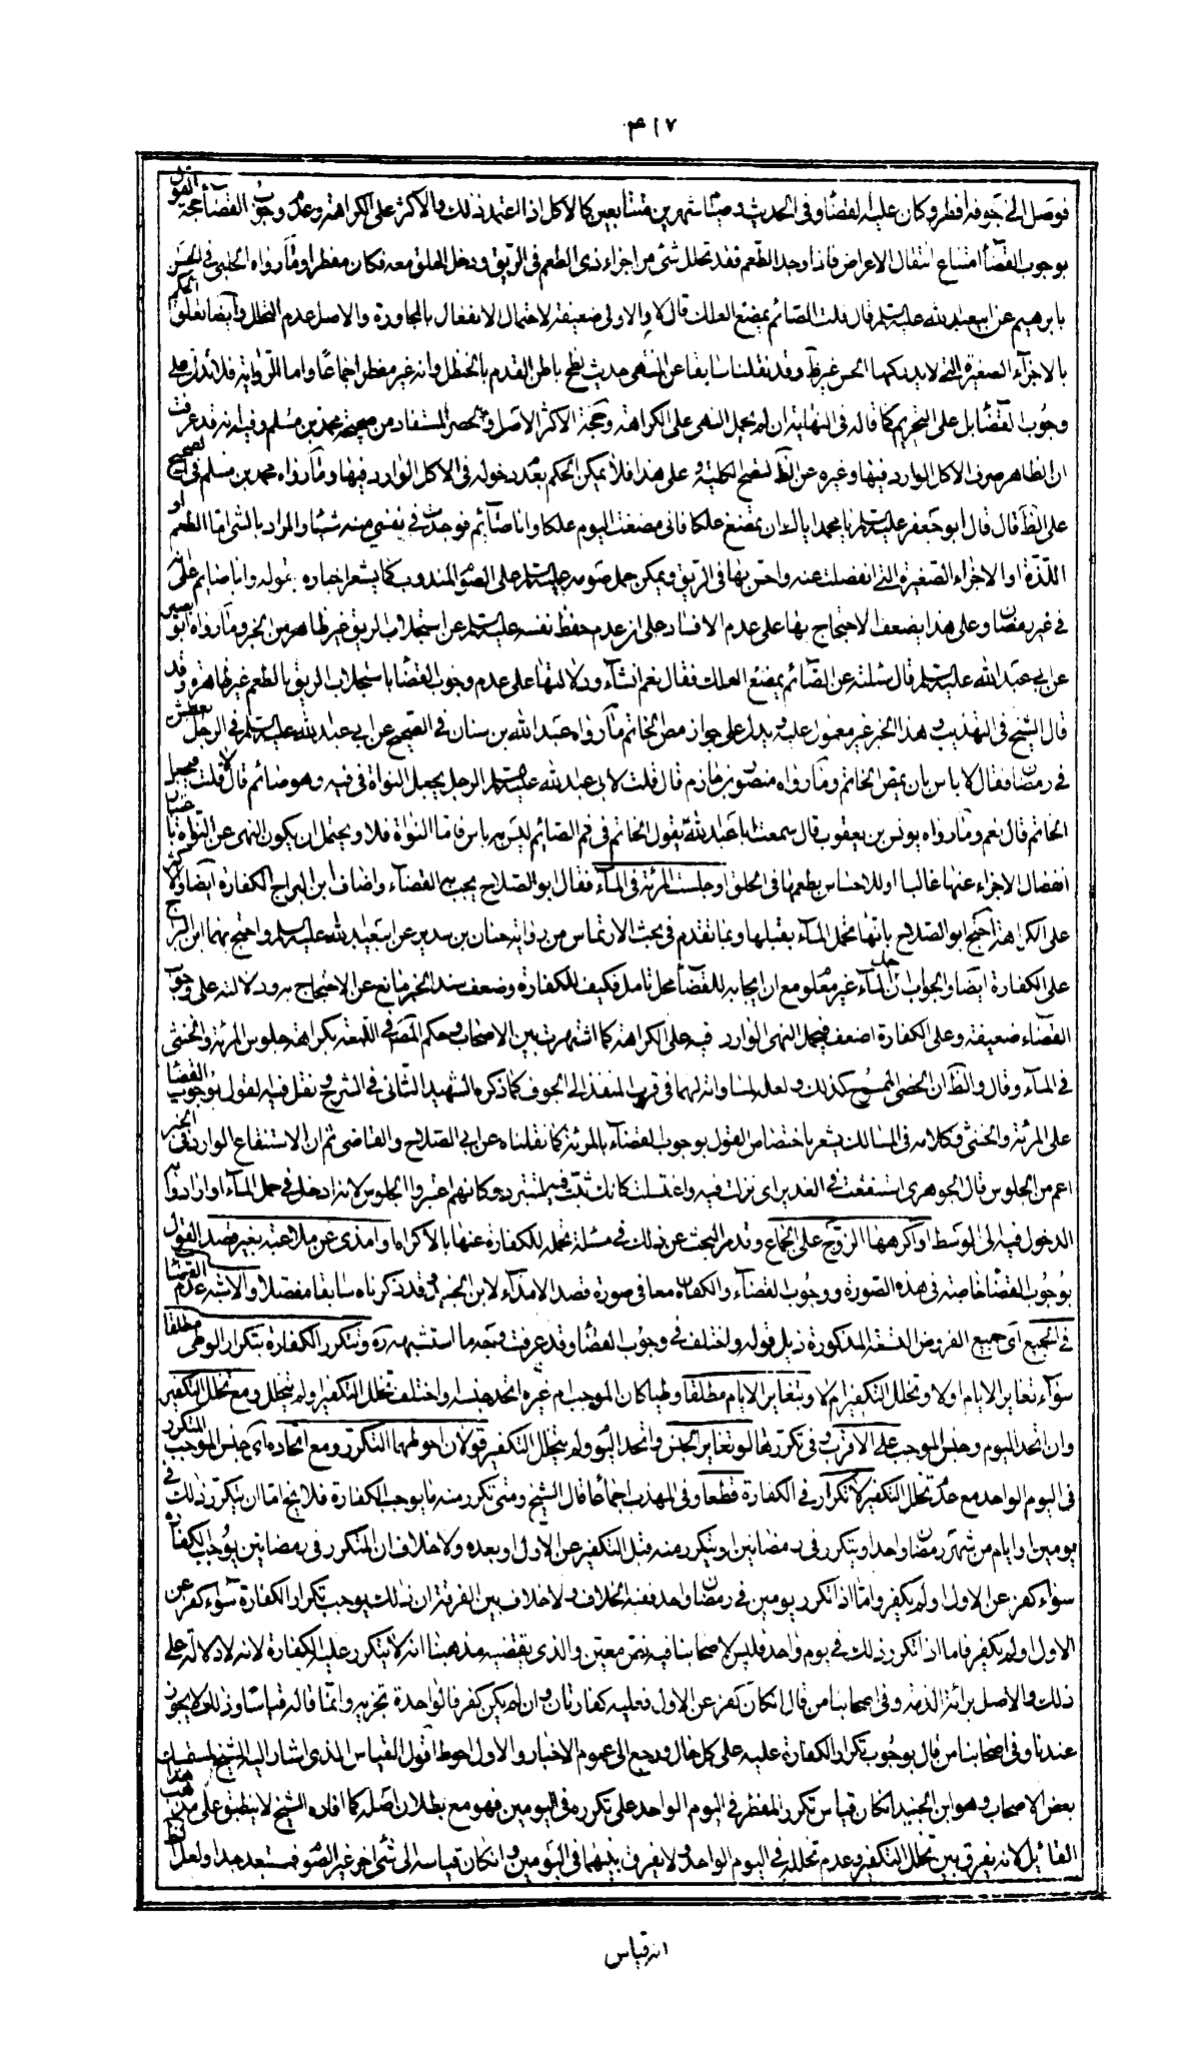 ٤١٧
فوصل الى جوفه افطر وكان عليه القضاء وفى الحديث وصيام شهرين متتابعين كالاكل اذا اعتمد ذلك والاكثر على الكراهة وعدم وجوب القضاء حجة القول
بوجوب القضاء امتناع انتقال الاعراض فاذا وجد الطعم فقد تحلل شئ من اجزاء ذى الطعم فى الريق ودخل الحلق معه فكان مفطرا وما رواه الحلبى فى الحسن
بابرهيم عن ابيعبد الله عليه السلم قال قلت الصائم يمضغ العلك قال لا والاولى ضعيفة لاحتمال الانفعال بالمجاورة والاصل عدم التحلل وايضا تعلق الحكم
بالاجزاء الصغيرة التى لا يدركها الحس غير ظ وقد نقلنا سابقا عن المنتهى حديث لطخ باطن القدم بالحنظل وانه غير مفطر اجماعا واما الرواية فلا تدل على
وجوب القضاء بل على التحريم كما قاله فى النهاية ان لم يحمل النهى على الكراهة وحجة الاكثر الاصل والحصر المستفاد من صحيحة محمد بن مسلم وفيه انه قد عرفت
ان الظاهر صرف الاكل الوارد فيها وغيره عن الظ لتصح الكلية وعلى هذا فلا يمكن الحكم بعدم دخوله فى الاكل الوارد فيها وما رواه محمد بن مسلم فى الصحيح
على الظ قال قال ابو جعفر عليه السلم يا محمد اياك ان تمضغ علكا فانى مضغت اليوم علكا وانا صائم فوجدت فى نفسى منه شيئا والمراد بالشئ اما الطعم او
اللذة او الاجزاء الصغيرة التى انفصلت عنه واحس بها فى الريق ويمكن حمل صومه عليه السلم على الصوم المندوب كما يشعر اخباره بقوله وانا صايم على انه
فى غير رمضان وعلى هذا يضعف الاحتجاج بها على عدم الافساد على ان عدم حفظ نفسه عليه السلم عن استجلاب الريق غير ظاهر من الخبر وما رواه ابو بصير
عن ابى عبد الله عليه السلم قال سئلته عن الصائم يمضغ العلك فقال نعم انشاء ودلالتها على عدم وجوب القضاء باستجلاب الريق بالطعم غير ظاهرة وقد
قال الشيخ فى التهذيب هذا الخبر غير معمول عليه ويدل على جواز مص الخاتم ما رواه عبد الله بن سنان فى الصحيح عن ابى عبد الله عليه السلم فى الرجل يعطش
فى رمضان فقال لا باس بان يمص الخاتم وما رواه منصور بن حازم قال قلت لابى عبد الله عليه السلم الرجل يجعل النواة فى فيه وهو صائم قال لا قلت فيجعل
الخاتم قال نعم وما رواه يونس بن يعقوب قال سمعت ابا عبد الله يقول الخاتم فى فم الصائم ليس به باس فاما النواة فلا ويحتمل ان يكون النهى عن النواة باعتبار
انفصال الاجزاء عنها غالبا او للاحساس بطعمها فى الحلق او جلست المرئة فى الماء فقال ابو الصلاح يجب به القضاء واضاف ابن البراج الكفارة ايضا والاكثر
على الكراهة احتج ابو الصلاح بانها تحمل الماء بقبلها وبما تقدم فى بحث الارتماس من رواية حنان بن سدير عن ابيعبد الله عليه السلم واحتج بهما ابن البراج
على الكفارة ايضا والجواب ان حمل الماء غير معلوم مع ان ايجابه للقضاء محل تامل فكيف للكفارة وضعف سند الخبر مانع عن الاحتجاج به ودلالته على وجوب
القضاء ضعيفة وعلى الكفارة اضعف فيحمل النهى الوارد فيه على الكراهة كما اشتهرت بين الاصحاب وحكم المصنف فى اللمعة بكراهة جلوس المرئة والخنثى
فى الماء وقال والظ ان الخصى الممسوح كذلك ولعله لمساواته لهما فى قرب المنفذ الى الجوف كما ذكره الشهيد الثانى فى الشرح ونقل فيه القول بوجوب القضاء
على المرئة والخنثى وكلامه فى المسالك يشعر باختصاص القول بوجوب القضاء بالمرئة كما نقلناه عن ابى الصلاح والقاضى ثم ان الاستنقاع الوارد فى الخبر
اعم من الجلوس قال الجوهرى استنقعت فى الغدير اى نزلت فيه واغتسلت كانك ثبت فيه لتتبرد وكانهم اعتبروا الجلوس لانه ادخل فى حمل الماء او ارادوا به
الدخول فيه الى الوسط او اكرهها الزوج على الجماع وقد مر البحث عن ذلك فى مسئلة تحمله للكفارة عنها بالاكراه او امذى عن ملاعبة بغير قصد القول
بوجوب القضاء خاصة فى هذه الصورة ووجوب القضاء والكفارة معا فى صورة قصد الامذاء لابن الجنيد وقد ذكرناه سابقا مفصلا والاشبه عدم القضاء
فى الجميع اى جميع الفروض التسعة المذكورة ذيل قوله واختلف فى وجوب القضاء وقد عرفت وجه ما استشبهه ره وتتكرر الكفارة بتكرار الوطى مطلقا
سواء تغاير الايام اولا وتخلل التكفير ام لا وبتغاير الايام مطلقا وطيا كان الموجب ام غيره اتحد جنسه او اختلف تخلل التكفير او لم يتخلل ومع تخلل التكفير
وان اتحد اليوم وجنس الموجب على الاقرب وفى تكررها لو تغاير الجنس واتحد اليوم ولم يتخلل التكفير قولان احوطهما التكرر ومع اتحاده اى جنس الموجب المتكرر
فى اليوم الواحد مع عدم تخلل التكفير لا تكرار فى الكفارة قطعا وفى المهذب اجماعا قال الشيخ ومتى تكرر منه ما يوجب الكفارة فلا يخ اما ان يتكرر ذلك فى
يومين او ايام من شهر رمضان واحد او يتكرر فى رمضانين او يتكرر منه قبل التكفير عن الاول او بعده ولا خلاف ان المتكرر فى رمضانين يوجب الكفارة
سواء كفر عن الاول او لم يكفر واما اذا تكرر يومين فى رمضان واحد ففيه الخلاف ولا خلاف بين الفرقة ان ذلك يوجب تكرار الكفارة سواء كفر عن
الاول او لم يكفر فاما اذا تكرر ذلك فى يوم واحد فليس لاصحابنا فيه نص معين والذى يقتضيه مذهبنا انه لا يتكرر عليه الكفارة لانه لا دلالة على
ذلك والاصل برائة الذمة وفى اصحابنا من قال ان كان كفر عن الاول فعليه كفارتان وان لم يكن كفر فالواحدة تجزيه وانما قاله قياسا وذلك لا يجوز
عندنا وفى اصحابنا من قال بوجوب تكرار الكفارة عليه على كل حال ورجع الى عموم الاخبار والاول احوط اقول القياس الذى اشار اليه الشيخ
بعض الاصحاب وهو ابن الجنيد ان كان قياس تكرر المفطر فى اليوم الواحد على تكرره فى اليومين فهو مع بطلان اصله كما افاده الشيخ لا ينطبق على مذهب هذا
القائل لانه يفرق بين تخلل التكفير وعدم تخلله فى اليوم الواحد ولا يفرق بينهما فى اليومين وان كان قياسه الى شئ اخر غير الصوم فمستبعد جدا ولعل
انه قياس